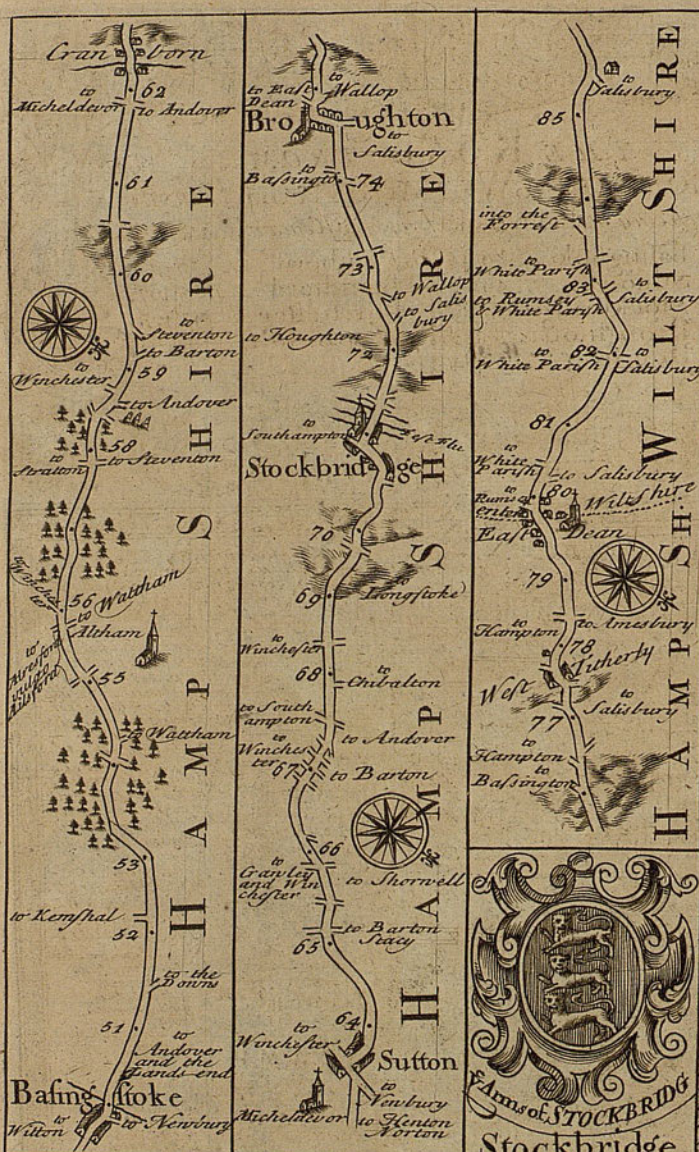 Cran born
62
to
Micheldevor
to Andover
61
60
to
Steventon
to Barton
to
Winchester
59
to Andover
58
to
Stratton
to Steventon
56
to Waltham
to
Altham
to
Alresford
vulgo
Ailsford
55
to Wattham
53
to Kemshal
52
to the
Downs
51
to
Andover
and the
Lands end
Basing stoke
to
Witton
to Newbury
HAMP SHIRE
to East
Dean
to
Wallop
Bro ughton
to
Salisbury
to
Baſsington
74
73
to Wallop
to Salis
bury
to Houghton
72
to
Southampton
Stockbridge
70
69
to
Longstoke
to
Winchester
68
to
Chibalton
to South
ampton
to Andover
to
Winches
ter
67
to Barton
66
to
Crawley
and Win
chester
to Shorwell
to Barton
Stacy
65
64
to
Winchester
Sutton
to
Newbury
Micheldevor
to Henton
Norton
HAMP SHIRE
to
Salisbury
85
into the
Forrest
to
White Parish
83
to
Salisbury
to Rumsey
& White Parish
82
to
White Parish
to
Salisbury
81
to
White
Parish
to Salisbury
80
to
Wiltshire
East Dean
79
to
Hampton
to Amesbury
78
West Titherly
to
Salisbury
77
to
Hampton
to
Baſsington
HAMP SH. WILT SHIRE
ye Arms of STOCKBRIDG
Stockbridge